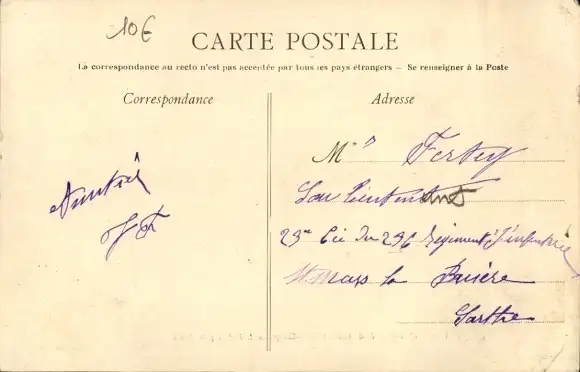 10€
CARTE POSTALE
La correspondance au recto n'est pas acceptée par tous les pays étrangers — Se renseigner à la Poste
Correspondance
Adresse
Amitié
Sous lieutenant
23me Cie du 236 Régiment d'infanterie
St Mars la Brière
Sarthe